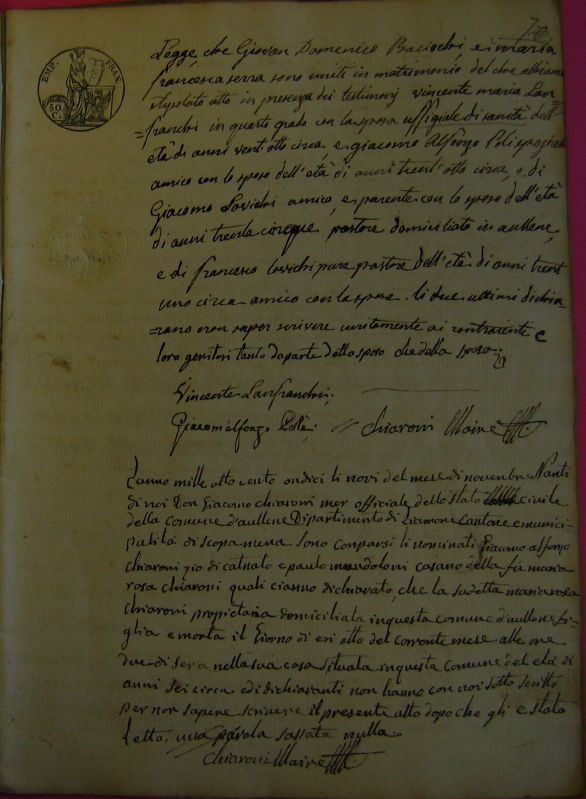 EMP. FRAN.
50 C.
Legge, che Giovan Domenico Baciochi, e maria
francesca serra sono uniti in matrimonio del che abbiamo
stipolato atto in presenza dei testimonj vincente maria Lan=
=franchi in quarto grado con la sposa uffiziale di sanità dell'
età di anni vent'otto circa, e giacomo Alfonzo Poli
amico con lo sposo dell'età di anni trent'otto circa, e di
Giacomo amico, e parente con lo sposo dell'età
di anni trenta cinque pastore domiciliato in aullene,
e di francesco pure pastore dell'età di anni trent'
uno circa amico con la sposa. li due ultimi dichia=
=rano non saper scrivere unitamente ai contraente e
loro genitori tanto da parte dello sposo che della sposa
Vincente Lanfranchi
Giacom'alfonzo Poli Chiaroni Maire
L'anno mille otto cento ondici li novi del mese di novembre Nanti
di noi Don Giacomo chiaroni mer officiale dello stato civile
della comune d'aullene Dipartimento di Liamone cantone e munici
palità di scopamena sono conparsi li nominati Giacomo alfonzo
chiaroni e paulo della fù maria
rosa chiaroni quali cianno dichiarato, che la sudetta maria rosa
chiaroni proprietaria domiciliata in questa comune d'aullene fi=
glia e morta il Giorno di eri otto del corrente mese alle ore
due di sera nella sua casa situata in questa comune del età di
anni sei circa ed i dichiaranti non hanno con noi sotto scritto
per non sapere scrivere il presente atto dopo che gli e stato
letto, una parola nulla
Chiaroni Maire